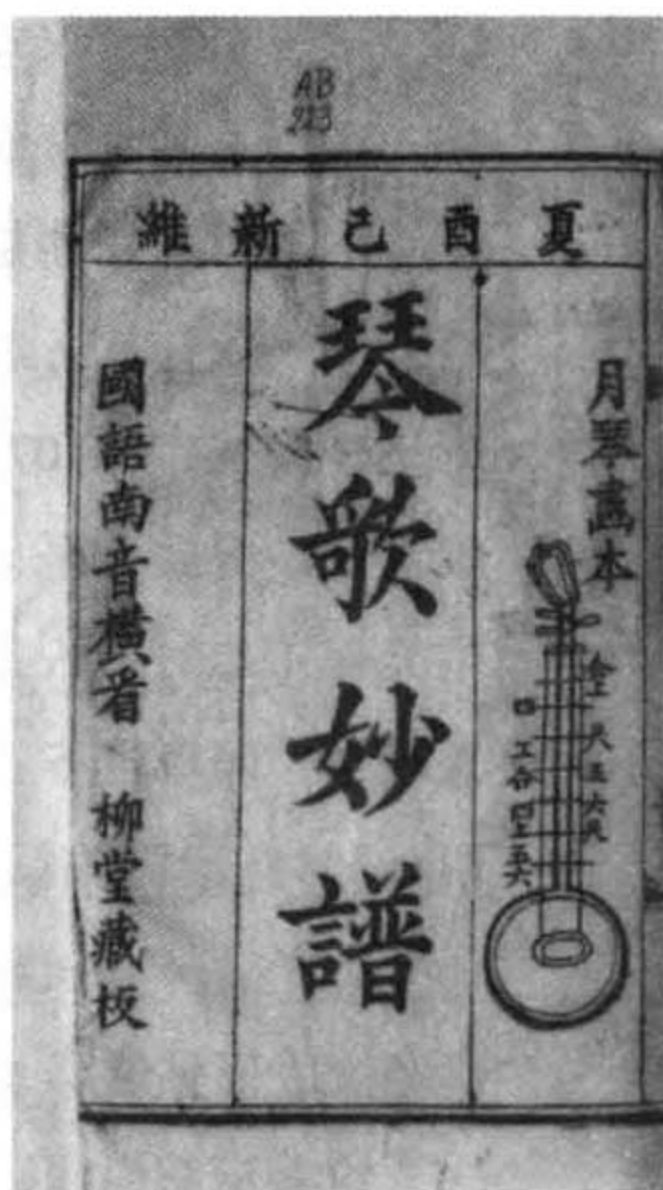 AB
213
維新己酉夏
月琴畫本
琴歌妙譜
國語南音橫看 柳堂藏板